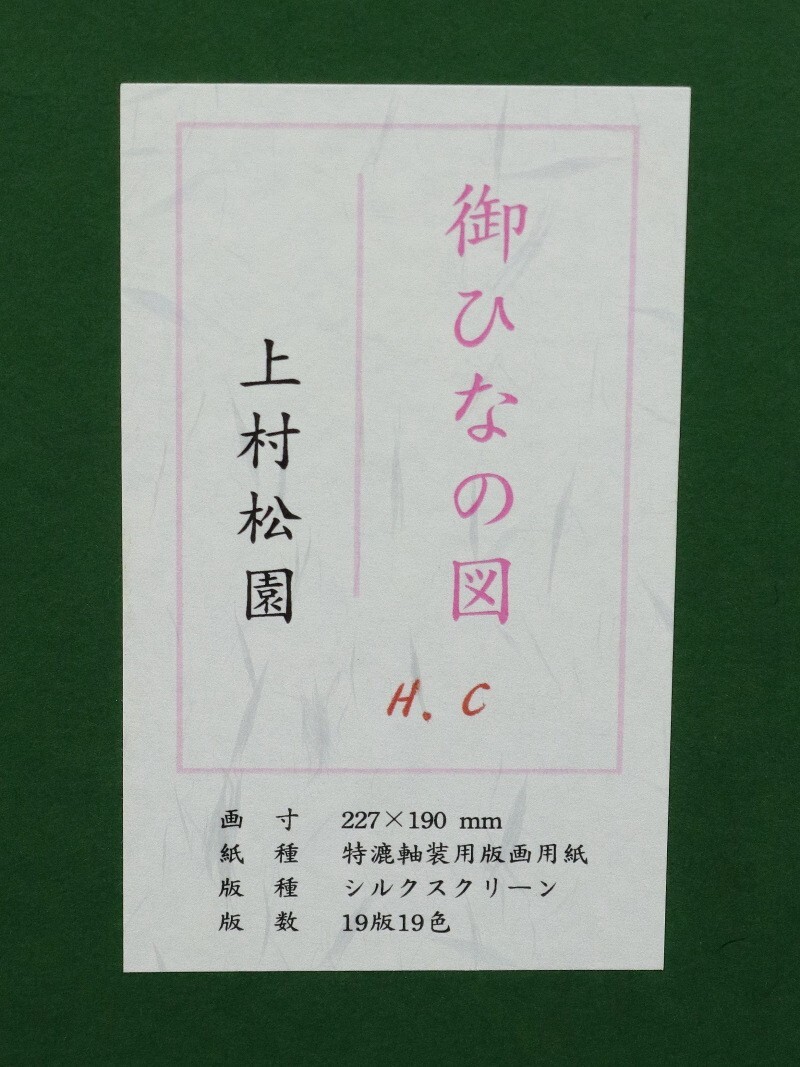 御ひなの図
上村松園
H. C
画寸 227×190 mm
紙種 特漉軸装用版画用紙
版種 シルクスクリーン
版数 19版19色